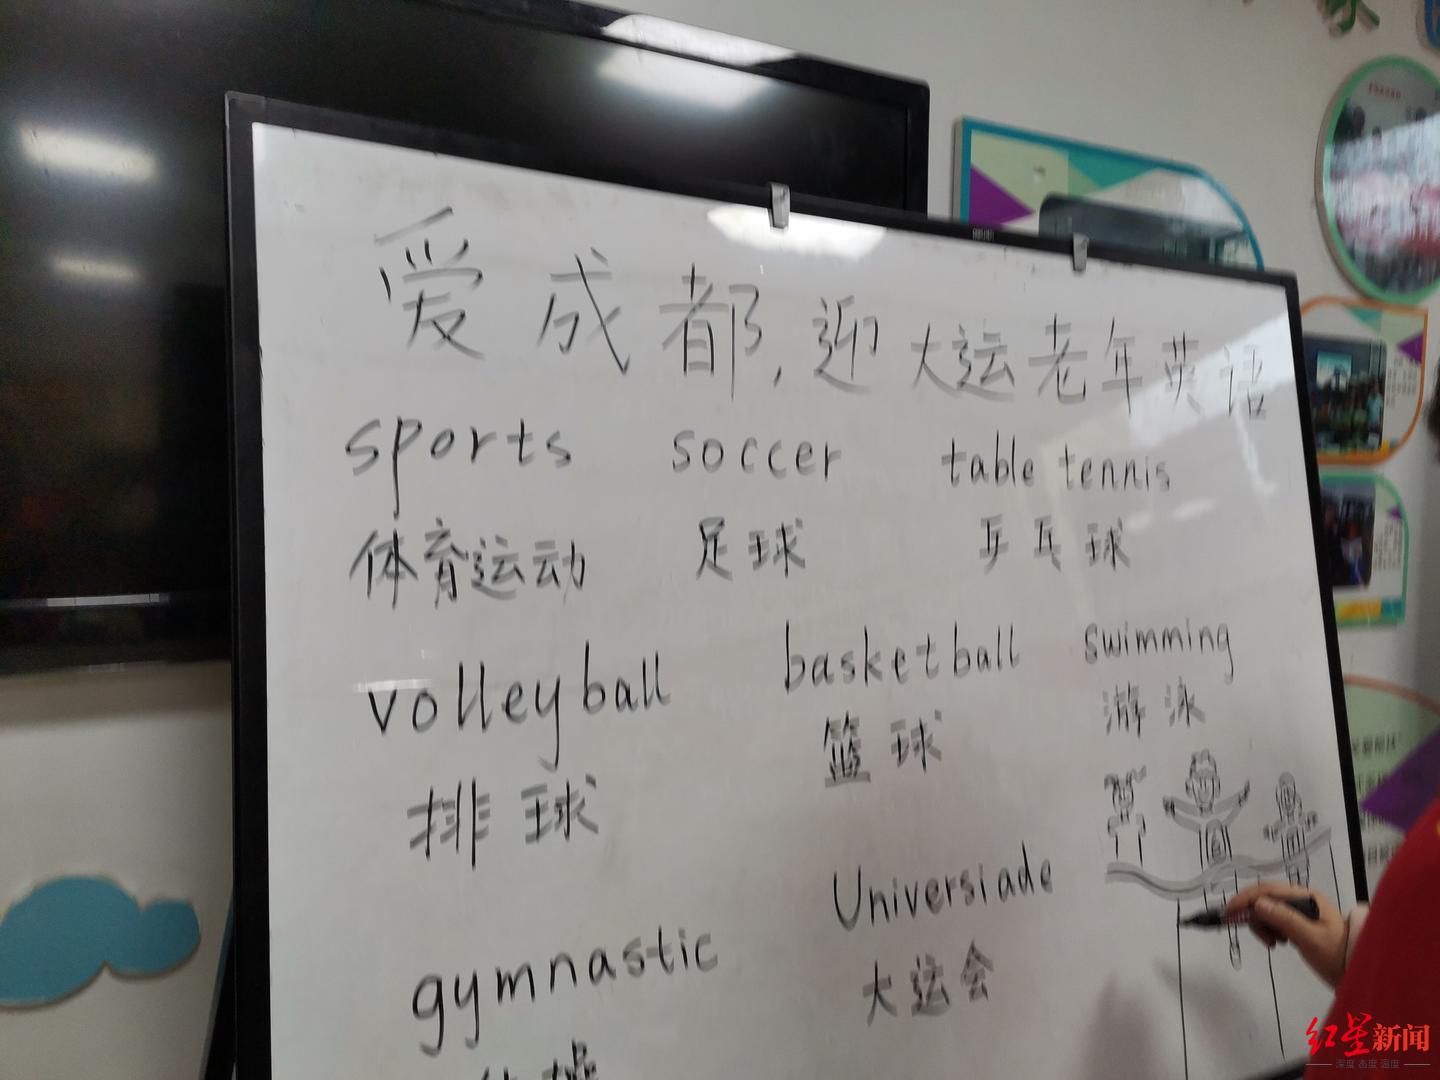 爱成都,迎大运老年英语
sports soccer table tennis
体育运动 足球 乒乓球
volleyball basketball swimming
排球 篮球 游泳
gymnastic Universiade
大运会
红星新闻
深度 态度 温度